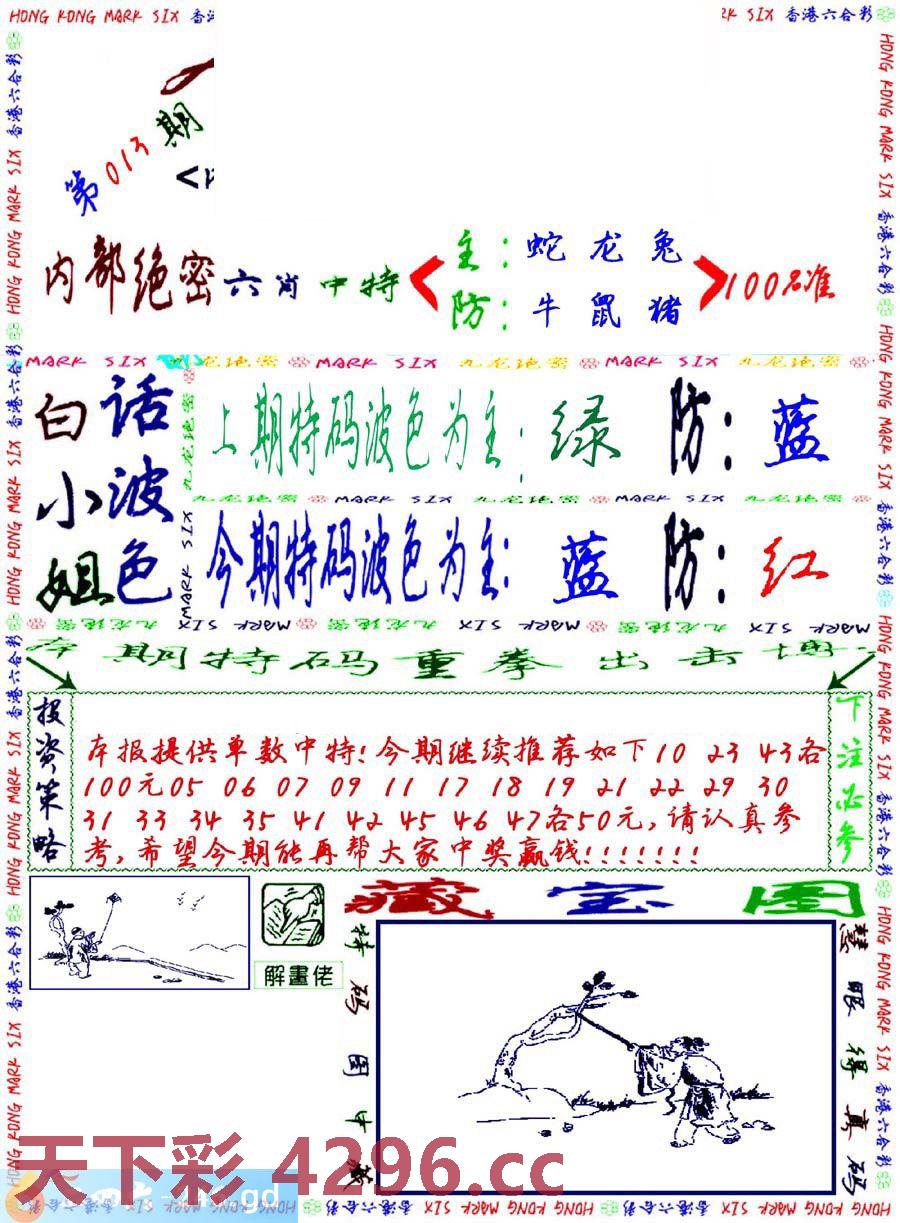 HONG KONG MARK SIX 香港六合彩
第013期
内部绝密六肖中特
主:蛇龙兔
防:牛鼠猪
100%准
MARK SIX 九龙绝密 MARK SIX 九龙绝密 MARK SIX 九龙绝密
白话波色
小姐
上期特码波色为主:绿 防:蓝
九龙绝密 MARK SIX 九龙绝密 MARK SIX 九龙绝密
今期特码波色为主:蓝 防:红
期特码重拳出击
投资策略
本报提供单数中特!今期继续推荐如下10 23 43各
100元05 06 07 09 11 17 18 19 21 22 29 30
31 33 34 35 41 42 45 46 47各50元,请认真参
考,希望今期能再帮大家中奖赢钱!!!!!!!
下注必参
藏宝图
解畫佬
特码图中藏
慧眼得真码
天下彩4296.cc